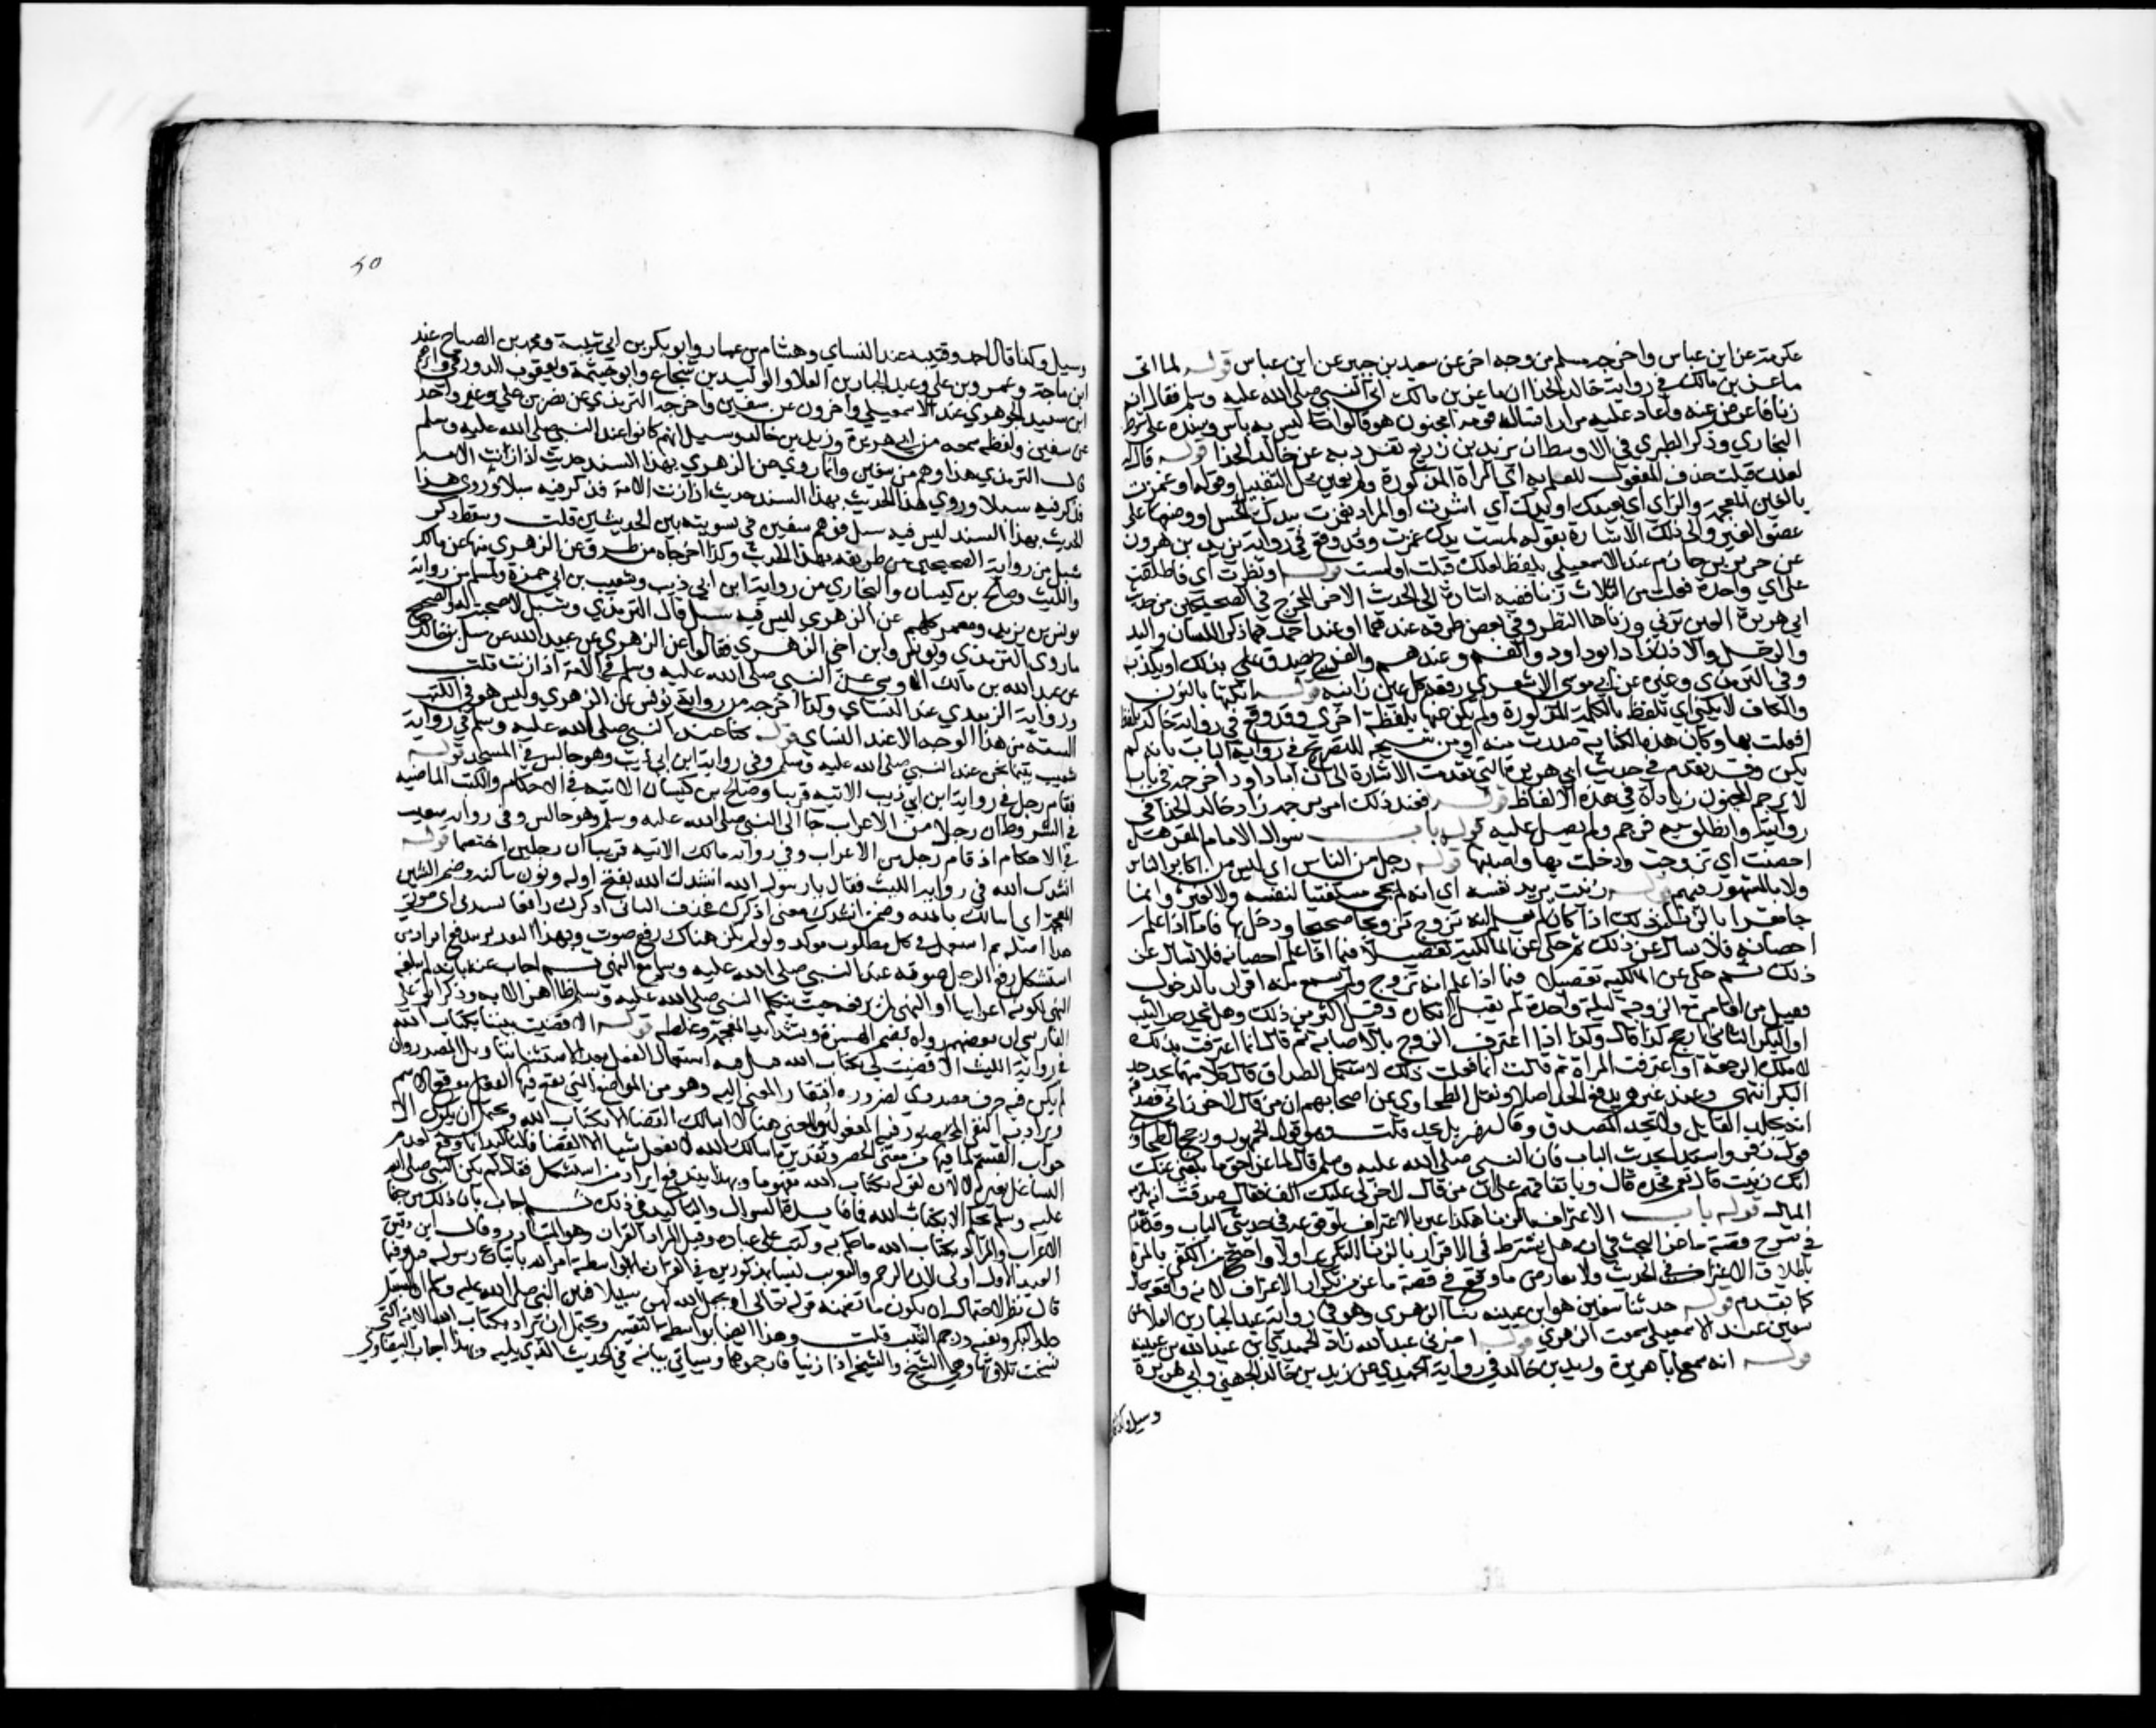 عكرمة عن ابن عباس واخرجه مسلم من وجه اخر عن سعيد بن جبير عن ابن عباس قوله لما اتى
ماعز بن مالك في رواية خالد الحذا ان ماعز بن مالك اتى النبي صلى الله عليه وسلم فقال انه
زنا فاعرض عنه فاعاد عليه مرارا فسال قومه امجنون هو قالوا ليس به باس وسنده على شرط
البخاري وذكر الطبري في الاوسط ان يزيد بن زريع تفرد به عن خالد الحذا قوله قال له
لعلك قبلت حذف المفعول للعلم به اي المراة المذكورة ولم يعين محل التقبيل وقوله او غمزت
بالغين المعجمة والزاي اي بعينك او يدك اي اشرت او المراد بغمزت بيدك الجس او وضعها على
عضو الغير والى ذلك الاشارة بقوله لمست بدل غمزت وقد وقع في رواية يزيد بن هرون
عن جرير بن حازم عند الاسمعيلي بلفظ لعلك قبلت او لمست قوله او نظرت اي فاطلقت
على اي واحدة فعلت من الثلاث زنا ففيه اشارة الى الحديث الاخر المخرج في الصحيحين من حديث
ابي هريرة العين تزني وزناها النظر وفي بعض طرقه عندهما او عند احدهما ذكر اللسان واليد
والرجل والاذن زاد ابو داود والفم وعندهم والفرج يصدق ذلك او يكذبه
وفي الترمذي وغيره عن ابي موسى الاشعري رفعه كل عين زانية قوله انكتها بالنون
والكاف لا يكني اي تلفظ بالكلمة المذكورة ولم يكن عنها بلفظة اخرى وقد وقع في رواية خالد بلفظ
افعلت بها وكان هذه الكناية صدرت منه او من شيخه للتصريح في رواية الباب بانه لم
يكن وقد تقدم في حديث ابي هريرة التي تقدمت الاشارة الى ان ابا داود اخرجه في باب
لا يرجم المجنون زيادات في هذه الالفاظ قوله فعند ذلك امر برجمه زاد خالد الحذا في
روايته وانطلق به فرجم ولم يصل عليه قوله باب سوال الامام المقر هل
احصنت اي تزوجت ودخلت بها واصبتها قوله رجل من الناس اي ليس من اكابر الناس
ولا بالمشهور فيهم قوله زنيت يريد نفسه اي انه لم يجي مستفتيا لنفسه ولا لغيره وانما
احصانه فلا يسال عن ذلك ثم حكى عن المالكية تفصيلا فيما اذا علم احصانه فلا يسال عن
ذلك ثم حكى عن المالكيه تفصيل فيما اذا علم انه تزوج ولم يسمع منه اقرار بالدخول
فقيل من اقام مع الزوجة ليلة واحدة لم يقبل انكاره وقيل اكثر من ذلك وهل يحد حد الثيب
او البكر الثاني ارجح كذا قال وكذا اذا اعترف الزوج بالاصابة ثم قال انما اعترفت بذلك
لاملك الرجعة او اعترفت المراة ثم قالت انما فعلت ذلك لاستكمل الصداق قال كلا منهما يحد حد
البكر انتهى وعند غيرهم يدفع الحد اصلا ونقل الطحاوي عن اصحابهم ان من قال لاخر يا زاني فصدقه
انه يجلد القايل ولا يحد المصدق وقال زفر بل يحد قلت وهو قول الجمهور ورجح الطحاوي
قول زفر واستدل بحديث الباب فان النبي صلى الله عليه وسلم قال لماعز احق ما بلغني عنك
انك زنيت قال نعم فحده قال وباتفاقهم على ان من قال لاخر لي عليك الف فقال صدقت انه يلزمه
المال قوله باب الاعتراف بالزنا هكذا عبر بالاعتراف لوقوعه في حديثي الباب وقد تقدم
في شرح قصة ماعز البحث في انه هل يشترط في الاقرار بالزنا التكرير اولا واحتج من اكتفى بالمرة
باطلاق الاعتراف في الحديث ولا يعارض ما وقع في قصة ماعز من تكرار الاعتراف لانه واقعة حال
كما تقدم قوله حدثنا سفين هو ابن عيينه ثنا الزهري وهو في رواية عبد الجبار بن العلا عن
سفين عند الاسمعيلي سمعت الزهري قوله اخبرني عبيد الله زاد الحميدي بن عبد الله بن عتبة
قوله انه سمع ابا هريرة وزيد بن خالد في رواية الحميدي عن زيد بن خالد الجهني وابي هريرة
وسبل وكذا
50
وسبل وكذا قال احمد وقتيبه عند النساي وهشام بن عمار وابو بكر بن ابي شيبة ومحمد بن الصباح عند
ابن ماجة وعمرو بن علي وعبد الجبار بن العلا والوليد بن شجاع وابو خيثمة ويعقوب الدورقي وابراهيم
ابن سعيد الجوهري عند الاسمعيلي واخرون عن سفين واخرجه الترمذي عن نصر بن علي وغير واحد
عن سفين ولفظه سمعه من ابي هريرة وزيد بن خالد وسبل انهم كانوا عند النبي صلى الله عليه وسلم
قال الترمذي هذا وهم من سفين وانما روي عن الزهري بهذا السند حديث اذا زنت الامة
فذكر فيه سبلا وروي هذا الحديث بهذا السند حديث اذا زنت الامة فذكر فيه سبلا وروى هذا
الحديث بهذا السند ليس فيه سبل فوهم سفين في تسويته بين الحديثين قلت وسقط ذكر
شبل من رواية الصحيحين من طريقه لهذا الحديث وكذا اخرجاه من طرق عن الزهري منها عن مالك
والليث وصالح بن كيسان والبخاري من رواية ابن ابي ذيب وشعيب بن ابي حمزة ولمسلم من رواية
يونس بن يزيد ومعمر كلهم عن الزهري ليس فيه سبل قال الترمذي وشبل لا صحبة له والصحيح
ماروى الزبيدي ويونس وابن اخي الزهري فقالوا عن الزهري عن عبيد الله عن سبل بن خالد
عن عبد الله بن مالك الاوسي عن النبي صلى الله عليه وسلم في الامة اذا زنت قلت
ورواية الزبيدي عند النساي وكذا اخرجه من رواية يونس عن الزهري وليس هو في الكتب
الستة من هذا الوجه الا عند النساي قوله كنا عند النبي صلى الله عليه وسلم في رواية
شعيب بينما نحن عند النبي صلى الله عليه وسلم وفي رواية ابن ابي ذيب وهو جالس في المسجد قوله
فقام رجل في رواية ابن ابي ذيب الاتيه قريبا وصالح بن كيسان الاتيه في الاحكام والليث الماضيه
في الشروط ان رجلا من الاعراب جا الى النبي صلى الله عليه وسلم وهو جالس وفي رواية شعيب
في الاحكام اذ قام رجل من الاعراب وفي رواية مالك الاتيه قريبا ان رجلين اختصما قوله
انشدك الله في رواية الليث فقال يا رسول الله انشدك الله بفتح اوله ونون ساكنه وضم الشين
المعجمة اي اسالك بالله وضمن انشدك معنى اذكرك فحذف البا اي اذكرك رافعا نشيدتي اي صوتي
هذا اصله ثم استعمل في كل مطلوب موكد ولو لم يكن هناك رفع صوت وبهذا التقرير يندفع ايراد من
استشكل رفع الرجل صوته عند النبي صلى الله عليه وسلم مع النهي ثم اجاب عنه بانه لم يبلغه
النهي لكونه اعرابيا او النهي لمن يرفعه حيث يتكلم النبي صلى الله عليه وسلم على ظاهر الاية وذكر ابو علي
الفارسي ان بعضهم رواه بضم الهمزة وبشد المعجمة وغلطه قوله الا قضيت بيننا بكتاب الله
في رواية الليث الا قضيت لي بكتاب الله قيل فيه استعمال الفعل بعد الاستثنا بتاويل المصدر وان
لم يكن فيه حرف مصدري لضرورة افتقار المعنى اليه وهو من المواضع التي يقع فيها الفعل موقع الاسم
ويراد به النفي المحصور فيه المفعول والمعنى هنا لا اسالك الا القضا بكتاب الله ويحتمل ان يكون الا
جواب القسم لما فيها من معنى الحصر وتقديره اسالك بالله لا تفعل شيا الا القضا فالتاكيد انما وقع لعدم
التشاغل بغيره لا لان لقوله بكتاب الله مفهوما وبهذا يندفع ايراد من استشكل فقال لم يكن النبي صلى الله
عليه وسلم يحكم الا بكتاب الله فما فايدة السوال والتاكيد في ذلك ثم اجاب بان ذلك من جفا
الاعراب والمراد بكتاب الله ما حكم به وكتب على عباده وقيل المراد القران وهو المتبادر وقال ابن دقيق
العيد الاول اولى لان الرجم والتغريب ليسا مذكورين في القران الا بواسطة امر الله باتباع رسوله قيل وفيما
قال نظر لاحتمال ان يكون ما تضمنه قوله تعالى او يجعل الله لهن سبيلا فبين النبي صلى الله عليه وسلم ان السبيل
جلد البكر ونفيه ورجم الثيب قلت وهذا ايضا بواسطة التفسير ويحتمل ان يراد بكتاب الله الاية التي
نسخت تلاوتها وهي الشيخ والشيخة اذا زنيا فارجموهما وسياتي بيانه في الحديث الذي يليه وبهذا اجاب البيضاوي